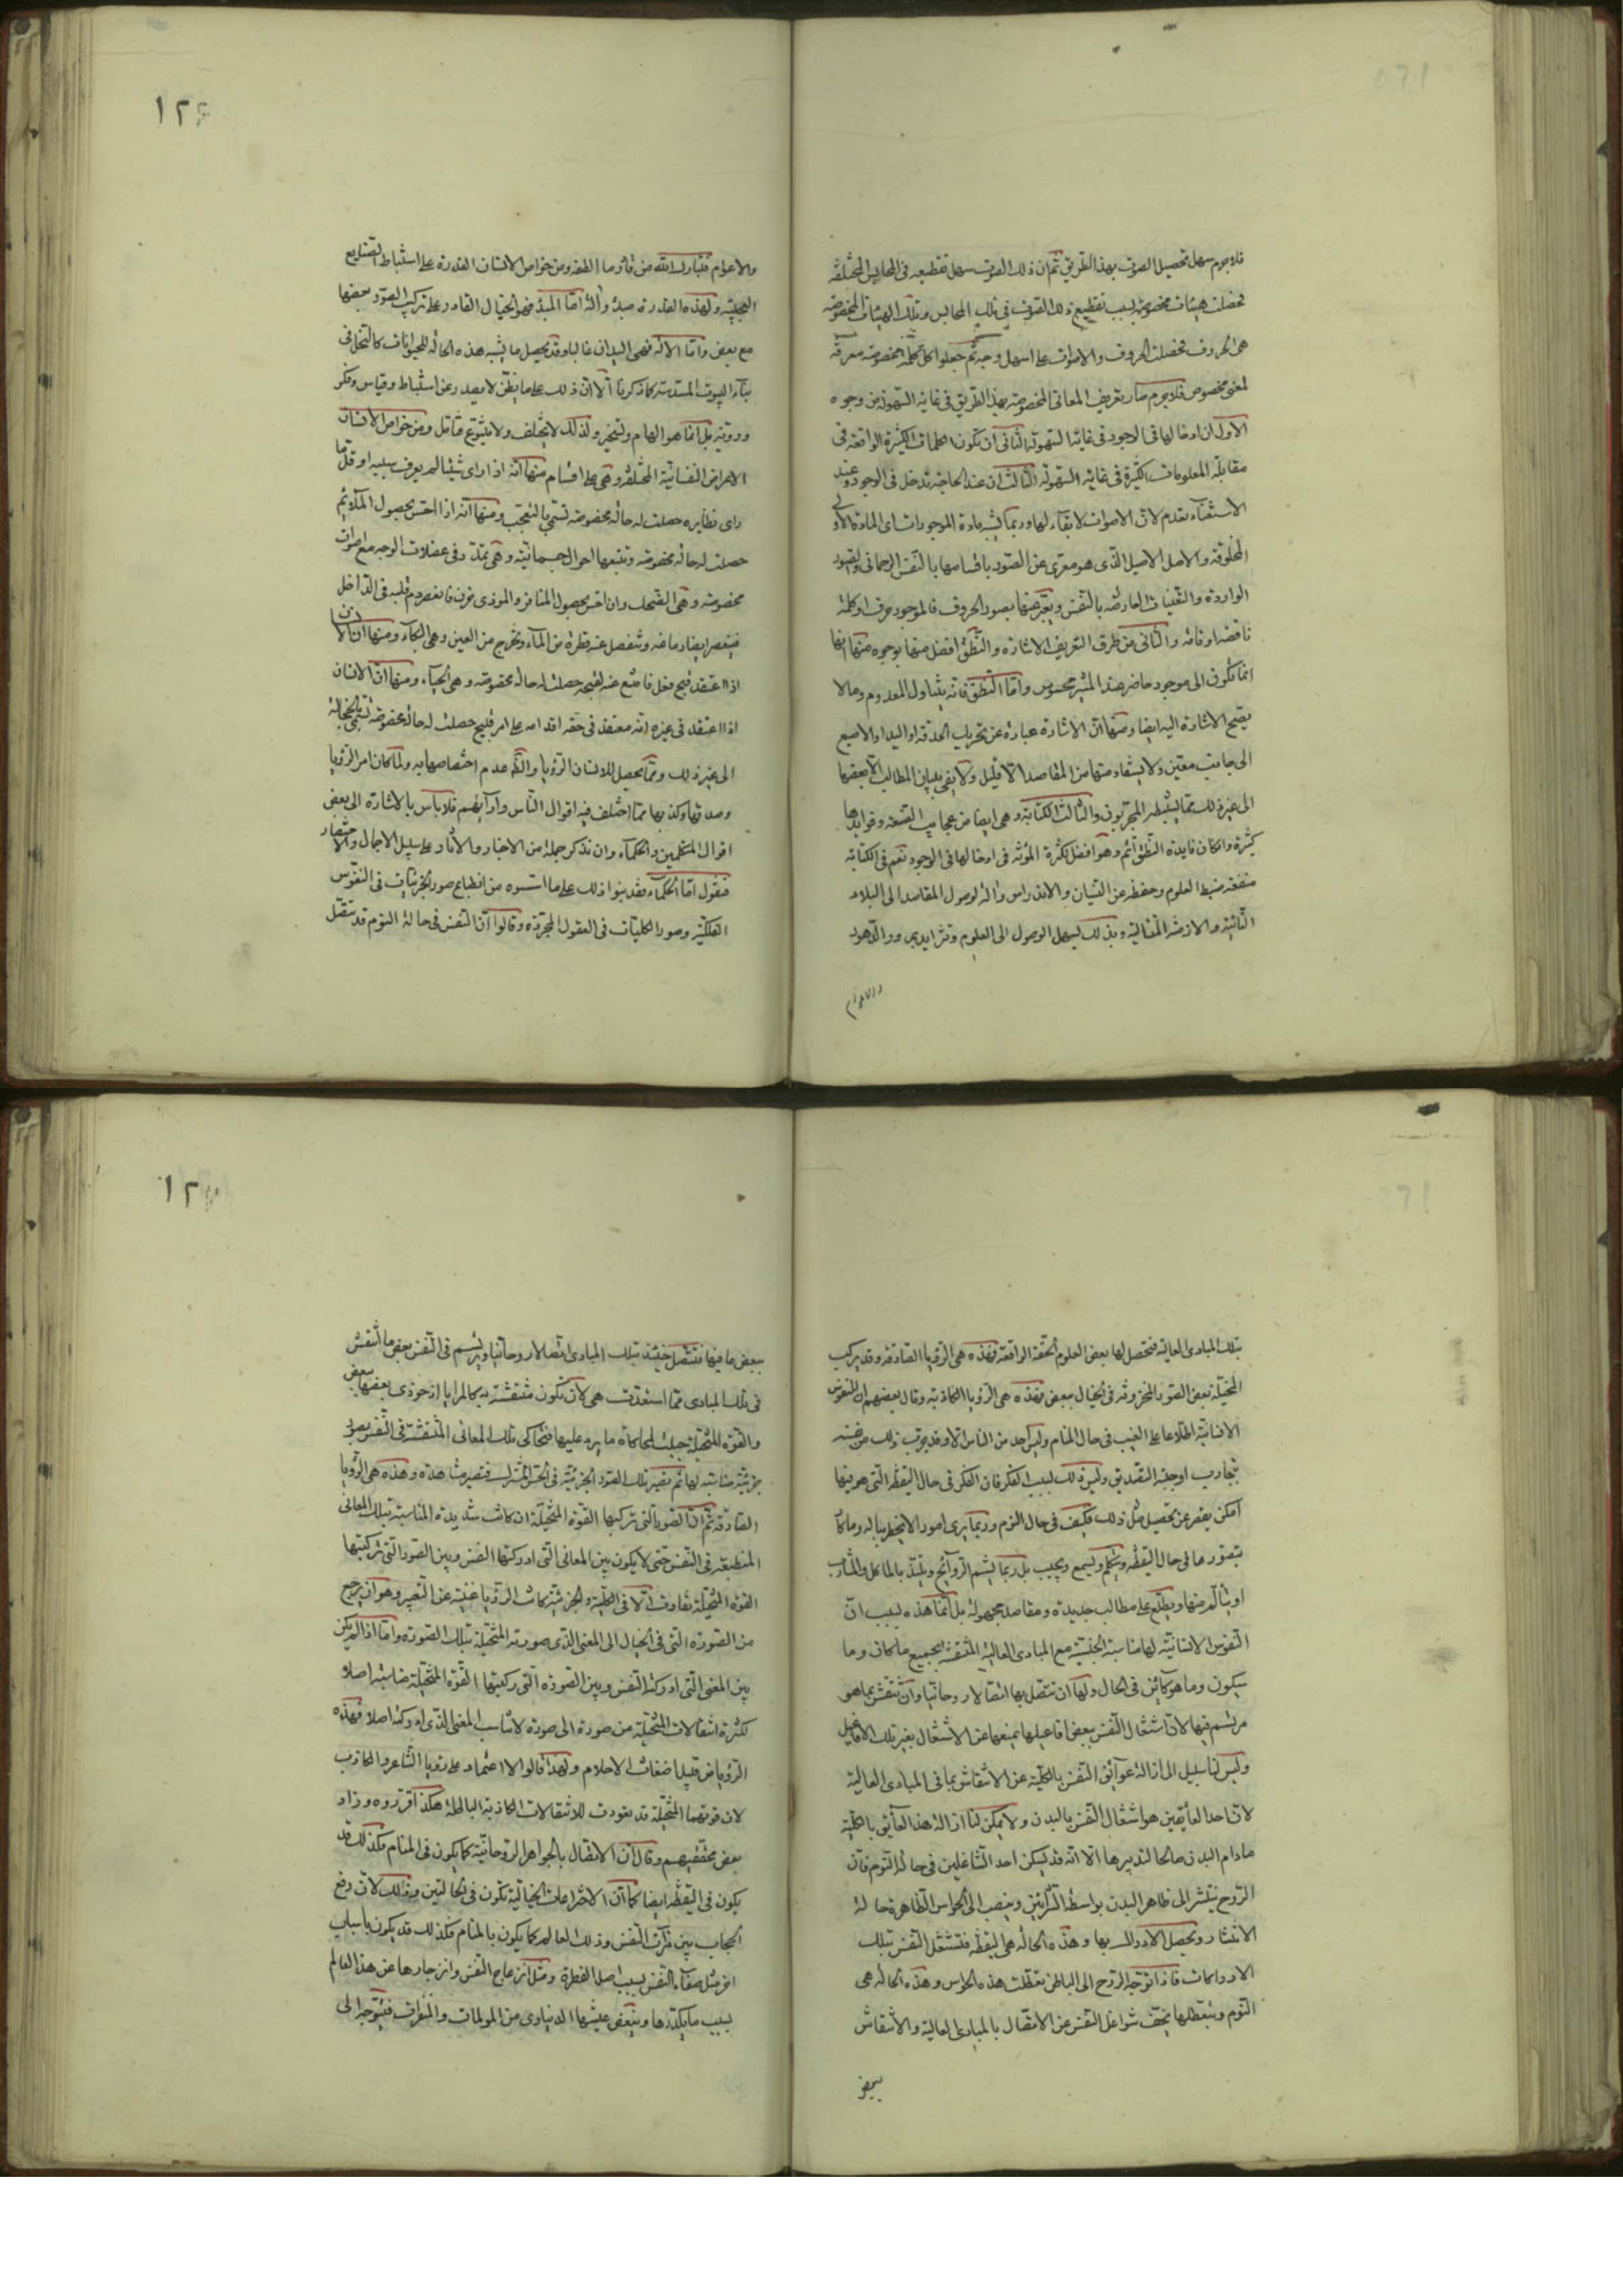 فلاجرم سهل تحصيل الصوت بهذا الطريق ثم ان ذلك الصوت سهل تقطيعه فى المحابس المختلفة
فحصلت هيئات مخصوصة بسبب تقطيع ذلك الصوت فى تلك المحابس وتلك الهيئات المخصوصة
هى الحروف فحصلت الحروف والاصوات على اسهل وجه ثم جعلوا كل كلمة مخصوصة معرفة
لمعنى مخصوص فلاجرم صار تعريف المعانى المخصوصة بهذا الطريق فى غاية السهولة من وجوه
الاول ان ادخالها فى الوجود فى غاية السهولة الثانى ان تكون الكلمات الكثيرة الواقعة فى
مقابلة المعلومات الكثيرة فى غاية السهولة الثالث ان عند الحاجة تدخل فى الوجود وعند
الاستغناء تعدم لان الاصوات لا بقاء لها وربما يشبه مادة الموجودات اى المادة الاولى
المخلوقة والاصل الاصيل الذى هو معرى عن الصور باقسامها بالنفس الرحمانى والصور
الواردة والتعينات العارضة بالنفس ويعبر عنها بصور الحروف فالموجود حرف او كلمة
ناقصة او تامة والثانى من طرق التعريف الاشارة والنطق افضل منها بوجوه منها انها
انما تكون الى موجود حاضر عند المشير محسوس واما النطق فانه يتناول المعدوم وما لا
يصح الاشارة اليه ايضا ومنها ان الاشارة عبارة عن تحريك الحدقة او اليد او الاصبع
الى جانب معين ولا يستفاد منها من المقاصد الا قليل ولا يفى ببيان المطالب الا بعضها
الى غير ذلك مما يستنبطه المجربون والثالث الكتابة وهى ايضا من عجايب الصنعة وفوايدها
كثيرة وان كان فايدة النطق اتم وهو افضل لكثرة المؤنة فى ادخالها فى الوجود نعم فى الكتابة
منفعة ضبط العلوم وحفظه عن النسيان والاندراس وآلة لوصول المقاصد الى البلاد
النائية والازمنة المتتالية وبذلك يسهل الوصول الى العلوم وتزايد بمرور الدهور
والاعوام
١٢٤
والاعوام فتبارك الله من قادر ما الطفه ومن خواص الانسان القدرة على استنباط الصنايع
العجيبة ولهذه القدرة مبدء وآلة اما المبدء فهو الخيال القادر على تركيب الصور بعضها
مع بعض واما الآلة فهى اليدان غالبا وقد يحصل ما يشبه هذه الحالة للحيوانات كالنحل فى
بناء البيوت المسدسة كما ذكرنا الا ان ذلك على ما يظن لا يصدر عن استنباط وقياس وفكر
وروية بل انما هو الهام وتسخير ولذلك لا يختلف ولا يتنوع فتامل ومن خواص الانسان
الاعراض النفسانية المختلفة وهى على اقسام منها انه اذا راى شيئا لم يعرف سببه او قل ما
راى نظايره حصلت له حالة مخصوصة تسمى بالتعجب ومنها انه اذا احس بحصول الملائم
حصلت له حالة مخصوصة وتتبعها احوال جسمانية وهى تمدد فى عضلات الوجه مع اصوات
مخصوصة وهى الضحك وان احس بحصول المنافر والموذى حزن فانعصر دم قلبه فى الداخل
فينعصر ايضا دماغه وتنفصل عنه قطرة من الماء وتخرج من العين وهى البكاء ومنها ان الانسان
اذا اعتقد قبح فعل فامتنع عنه لقبحه حصلت له حالة مخصوصة وهى الحياء ومنها ان الانسان
اذا اعتقد فى غيره انه معتقد فى حقه اقدامه على امر قبيح حصلت له حالة مخصوصة تسمى بالخجالة
الى غير ذلك ومما يحصل للانسان الرؤيا والله عدم اختصاصها به ولما كان امر الرؤيا
وصدقها وكذبها مما اختلف فيه اقوال الناس وآرائهم فلا باس بالاشارة الى بعض
اقوال المتكلمين والحكماء وان نذكر جملة من الاخبار والآثار على سبيل الاجمال والاختصار
فنقول اما الحكماء فقد بنوا ذلك على ما اسسوه من انطباع صور الجزئيات فى النفوس
الفلكية وصور الكليات فى العقول المجردة وقالوا ان النفس فى حالة النوم قد تتصل
بتلك المبادى العالية فتحصل لها بعض العلوم الحقة الواقعة فهذه هى الرؤيا الصادقة وقد يركب
المخيلة بعض الصور المخزونة فى الخيال ببعض فهذه هى الرؤيا الكاذبة وقال بعضهم ان للنفوس
الانسانية اطلاعا على الغيب فى حال المنام وليس احد من الناس الا وقد جرب ذلك من نفسه
بتجارب اوجبته التصديق وليس ذلك بسبب الفكر فان الفكر فى حال اليقظة التى هو فيها
امكن يقصر عن تحصيل مثل ذلك فكيف فى حال النوم وربما يرى امورا لا يخطر بباله وما كان
يتصورها فى حال اليقظة ويتكلم ويسمع ويجيب بل ربما يشم الروائح ويلتذ بالمآكل والمشارب
او يتالم منها ويطلع على مطالب جديدة ومقاصد مجهولة بل انما هذه بسبب ان
النفوس الانسانية لها مناسبة الجنسية مع المبادى العالية المنتقشة بجميع ما كان وما
سيكون وما هو كائن فى الحال ولها ان تتصل بها اتصالا روحانيا وان تنتقش بما هو
مرتسم فيها لان اشتغال النفس ببعض افاعيلها يمنعها عن الاشتغال بغير تلك الافاعيل
وليس لنا سبيل الى ازالة عوائق النفس بالكلية عن الانتقاش بما فى المبادى العالية
لان احد العائقين هو اشتغال النفس بالبدن ولا يمكن لنا ازالة هذا العائق بالكلية
ما دام البدن صالحا لتدبيرها الا انه قد يسكن احد الشاغلين فى حالة النوم فان
الروح ينتشر الى ظاهر البدن بواسطة الشرائين وينصب الى الحواس الظاهرة حالة
الانتشار وتحصل الادراك بها وهذه الحالة هى اليقظة فتشتغل النفس بتلك
الادراكات فاذا توجه الروح الى الباطن تعطلت هذه الحواس وهذه الحالة هى
النوم وبتعطلها يخف شواغل النفس عن الاتصال بالمبادى العالية والانتقاش
ببعض
١٢
ببعض ما فيها فتتصل حينئذ بتلك المبادى اتصالا روحانيا ويرتسم فى النفس بعض ما انتقش
فى تلك المبادى مما استعدت هى لان تكون منتقشة به كالمرايا اذ حوذى بعضها ببعض
والقوة المتخيلة جبلت لمحاكاة ما يرد عليها فتحاكى تلك المعانى المنتقشة فى النفس بصور
جزئية مناسبة لها ثم تصير تلك الصور الجزئية فى الحس المشترك فتصير مشاهدة وهذه هى الرؤيا
الصادقة ثم ان الصور التى تركبها القوة المتخيلة ان كانت شديدة المناسبة بتلك المعانى
المنطبعة فى النفس حتى لا يكون بين المعانى التى ادركتها النفس وبين الصور التى تركبتها
القوة المتخيلة تفاوت الا فى الكلية والجزئية كانت الرؤيا غنية عن التعبير وهو ان يرجع
من الصورة التى فى الخيال الى المعنى الذى صورته المتخيلة بتلك الصورة واما اذا لم يكن
بين المعنى التى ادركته النفس وبين الصورة التى ركبتها القوة المتخيلة مناسبة اصلا
لكثرة انتقالات المتخيلة من صورة الى صورة لا تناسب المعنى الذى ادركته اصلا فهذه
الرؤيا من قبيل اضغاث الاحلام ولهذا قالوا لا اعتماد على رؤيا الشاعر والكاذب
لان قوتهما المتخيلة قد تعودت للانتقالات الكاذبة الباطلة هكذا قرروه وزاد
بعض محققيهم وقال ان الاتصال بالجواهر الروحانية كما يكون فى المنام فكذلك قد
يكون فى اليقظة ايضا كما ان الاختراعات الخيالية تكون فى الحالتين وذلك لان رفع
الحجاب بين مرآت النفس وذلك العالم كما يكون بالمنام فكذلك قد يكون باسباب
اخر مثل صفاء النفس بسبب اصل الفطرة ومثل انزعاج النفس وانزجارها عن هذا العالم
بسبب ما يكدرها وينغص عيشها الدنياوى من المولمات والمنفرات فيتوجه الى